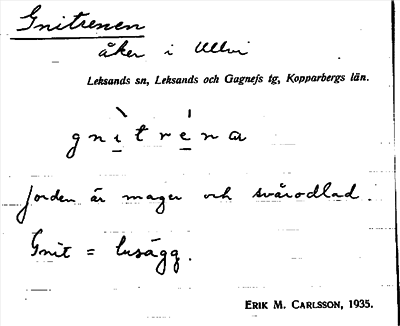 Gnitrenen
åker i Ullvi
Leksands sn, Leksands och Gagnefs tg, Kopparbergs län.
gnìtréna
Jorden är mager och svårodlad.
Gnit = lusägg.
ERIK M. CARLSSON, 1935.